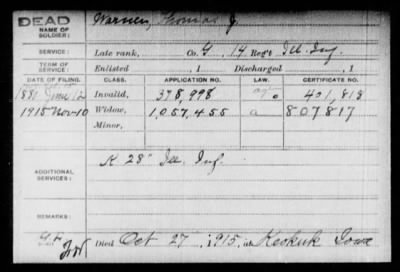 DEAD
NAME OF SOLDIER: Warner, Thomas J.
SERVICE: Late rank, Co. G, 14 Reg't Ill. Inf.
TERM OF SERVICE: Enlisted , 1 Discharged , 1
DATE OF FILING. CLASS. APPLICATION NO. LAW. CERTIFICATE NO.
1881 June 12 Invalid, 378,998 401,813
1915 Nov-10 Widow, 1,057,455 a 807817
Minor,
ADDITIONAL SERVICES: K 28" Ill. Inf.
REMARKS:
Died Oct 27, 1915, at Keokuk Iowa